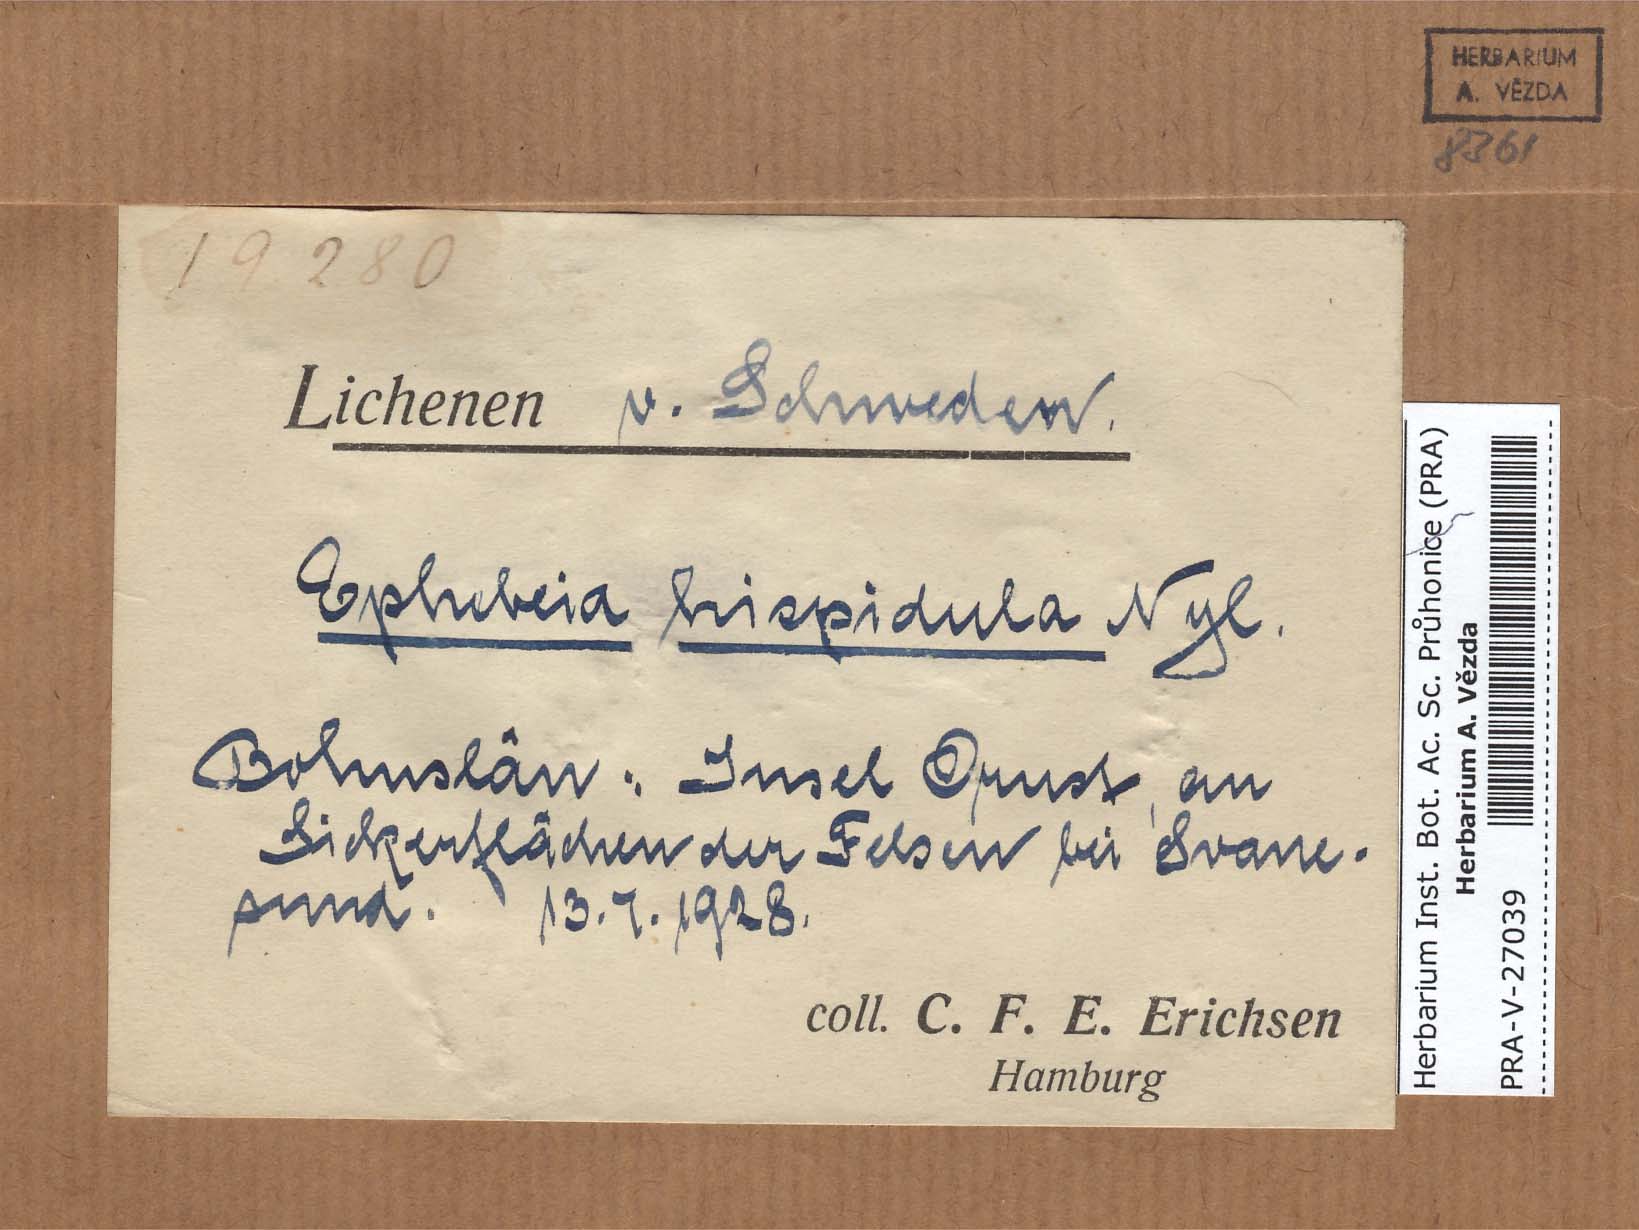 HERBARIUM
A. VĚZDA
8361
19280
Lichenen v. Schweden.
Ephebeia hispidula Nyl.
Bohuslän: Insel Orust, an
Sickerflächen der Felsen bei Svane-
sund. 13.7.1928.
coll. C. F. E. Erichsen
Hamburg
Herbarium Inst. Bot. Ac. Sc. Průhonice (PRA)
Herbarium A. Vězda
PRA-V-27039